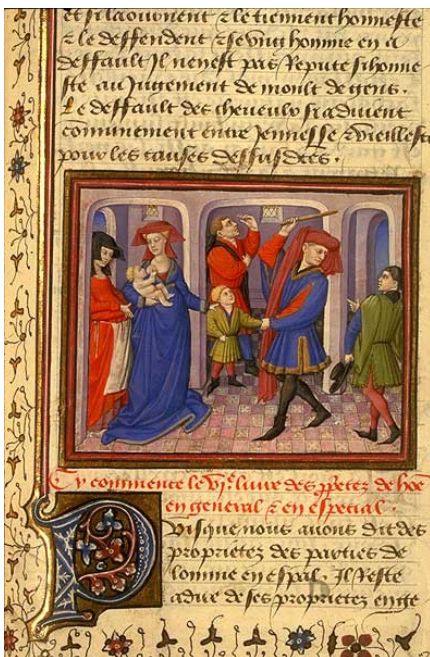 et si laournent & le tiennent honneste
& le deffendent & se ung homme en a
deffault Il nen est pas Repute si honne
ste au Jugement de moult de gens .
Le deffault des cheveulx si advient
communement entre Jennesse & vieillesse
pour les causes dessusdctes .
Cy commence le vje livre des ppetez de hoe
en general & en especial .
Puis que nous avons dit des
proprietez des parties de
lomme en espal . Il Reste
a dire de ses proprietez en ge